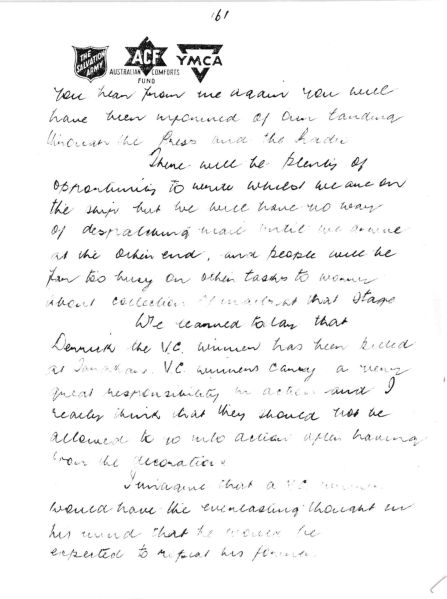 161
THE SALVATION ARMY
ACF
AUSTRALIAN COMFORTS FUND
YMCA
You hear from me again you will
have been informed of our landing
through the Press and the Radio
There will be plenty of
opportunity to write whilst we are on
the ship but we will have no way
of despatching mail until we arrive
at the other end, and people will be
far too busy on other tasks to worry
about collection of mail at that stage
We learned to day that
Derrick the V.C. winner has been killed
at Tarakan. V.C. winners carry a very
great responsibility in action and I
really think that they should not be
allowed to go into action after having
won the decoration.
I imagine that a V.C. winner
would have the everlasting thought in
his mind that he would be
expected to repeat his former